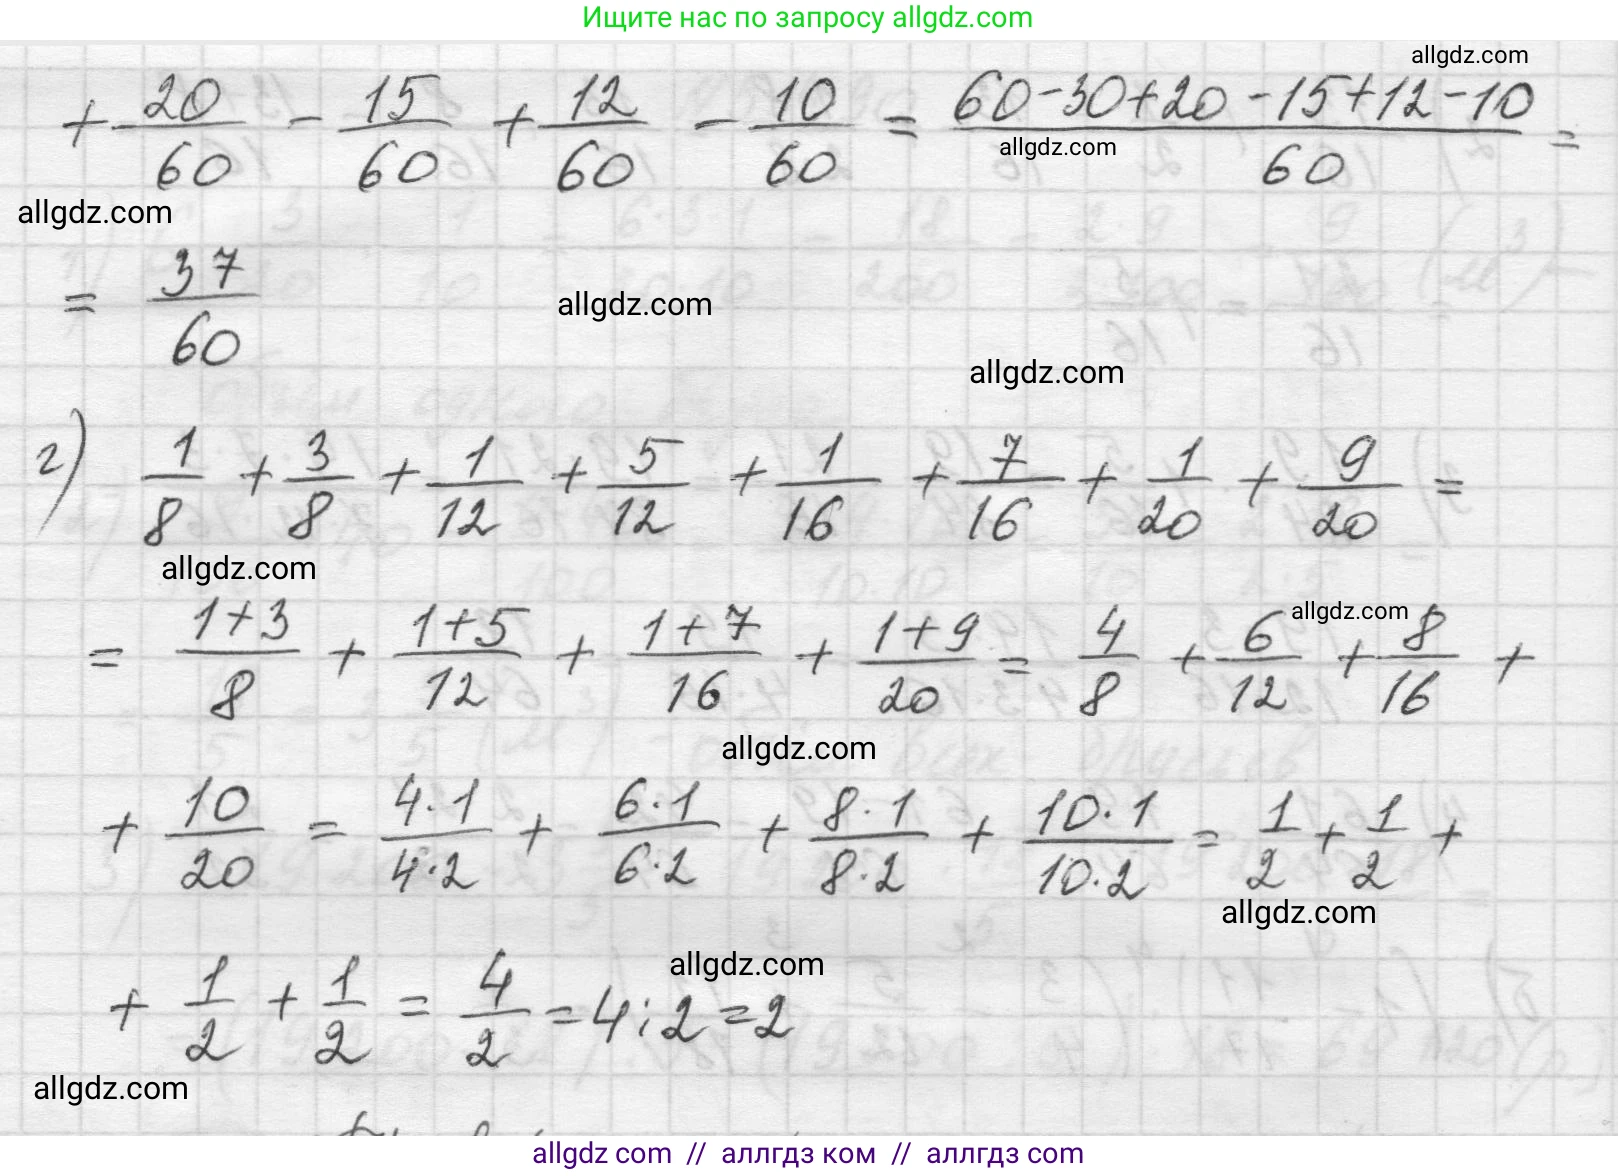 Ищите нас по запросу allgdz.com
allgdz.com
+ 20/60 - 15/60 + 12/60 - 10/60 = (60-30+20-15+12-10)/60 =
allgdz.com
allgdz.com
= 37/60
allgdz.com
allgdz.com
г) 1/8 + 3/8 + 1/12 + 5/12 + 1/16 + 7/16 + 1/20 + 9/20 =
allgdz.com
= (1+3)/8 + (1+5)/12 + (1+7)/16 + (1+9)/20 = 4/8 + 6/12 + 8/16 +
allgdz.com
allgdz.com
+ 10/20 = (4·1)/(4·2) + (6·1)/(6·2) + (8·1)/(8·2) + (10·1)/(10·2) = 1/2 + 1/2 +
allgdz.com
+ 1/2 + 1/2 = 4/2 = 4:2 = 2
allgdz.com
allgdz.com
allgdz com // аллгдз ком // allgdz com